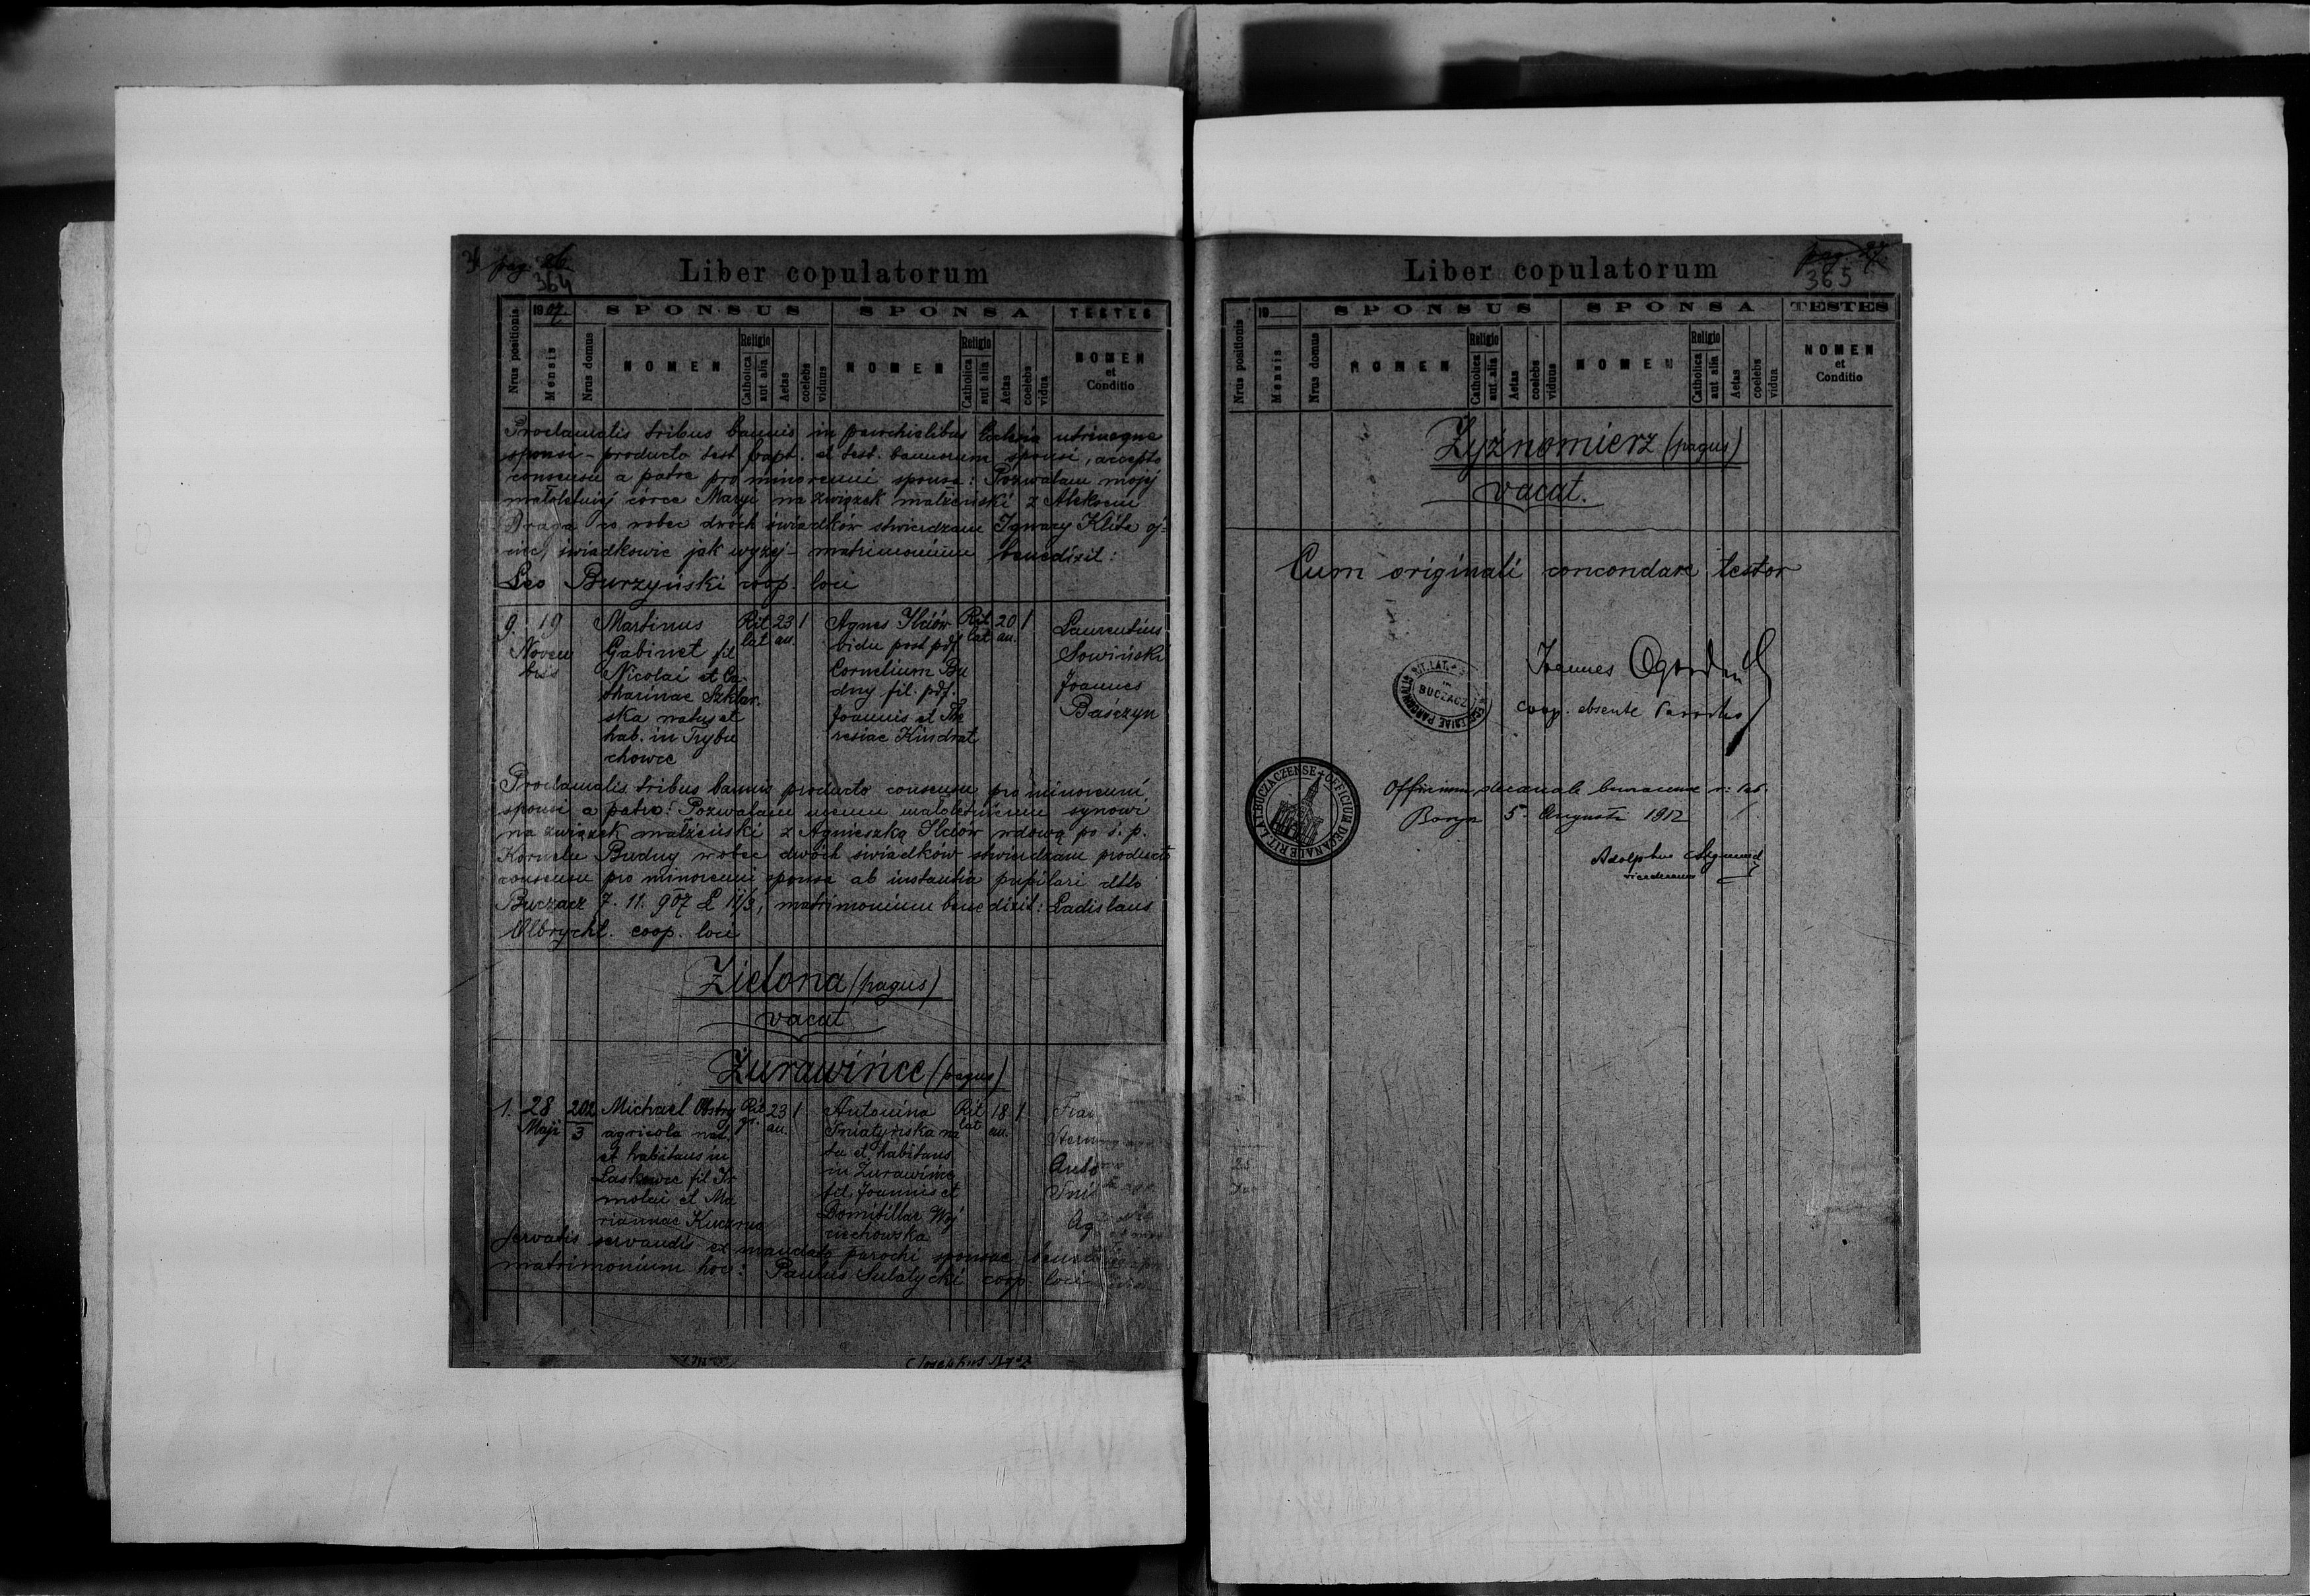 pag. 26
364
Liber copulatorum
Nrus positionis
1907
Mensis
Nrus domus
SPONSUS
NOMEN
Religio
Catholica
aut alia
Aetas
coelebs
viduus
SPONSA
NOMEN
Religio
Catholica
aut alia
Aetas
coelebs
vidua
TESTES
NOMEN
et
Conditio
Proclamatis tribus bannis in parochialibus Ecclesia utriusque
sponsi - producto test. bapt. et test. bannorum sponsi, accepto
consensu a patre pro minorenni sponsa: Pozwalam mojej
małoletniej córce Maryi na związek małżeński z Aleksem
Draga w obec dwóch świadków stwierdzam Ignacy Klita oj-
ciec, świadkowie jak wyżej - matrimonium benedixit:
Leo Burzyński coop. loci
9. 19 Martinus Rit 23 1 Agnes Ilciów Rit 20 1 Laurentius
Novem Gabinet fil lat an. vidu post pdf. lat an. Sowiński
bris Nicolai et Ca- Cornelium Bu Joannes
tharinae Szklar- dny fil. pdf. Baśczyn
ska natus et Joannis et The
hab. in Trybu resiae Kindrat
chowce
Proclamatis tribus bannis producto consensu pro minorenni
sponsi a patre: Pozwalam memu małoletniemu synowi
na związek małżeński z Agnieszką Ilciów wdową po ś. p.
Kornelu Budny w obec dwóch świadków stwierdzam producto
consensu pro minorenni sponsa ab instantia pupilari dtto
Buczacz 7. 11. 907 L 11/3, matrimonium benedixit: Ladislaus
Olbrycht. coop. loci
Zielona (pagus)
vacat
Żurawińce (pagus)
1. 28 202 Michael Rit 23 1 Antonina Rit 18 1
Maji 3 agricola nat. gr. an. Śniatyńska na lat an.
et habitans in ta et habitans
Laskowce fil Ir in Żurawińce
molai et Ma fil. Joannis et
riannae Domitillae Woj
ciechowska
Servatis servandis ex mandato parochi sponsae
matrimonium hoc: Paulus Sulatycki coop. loci
365
Liber copulatorum
Nrus positionis
19
Mensis
Nrus domus
SPONSUS
NOMEN
Religio
Catholica
aut alia
Aetas
coelebs
viduus
SPONSA
NOMEN
Religio
Catholica
aut alia
Aetas
coelebs
vidua
TESTES
NOMEN
et
Conditio
Żyżnomierz (pagus)
vacat.
Cum originali concordare testor
Joannes
coop. absente Parocho
BUCZACZ
RIT. LAT. BUCZACZENSE + OFFICIUM DECANALE
Officium decanale
5 Augusti 1912
Adolphus
vicedecanus